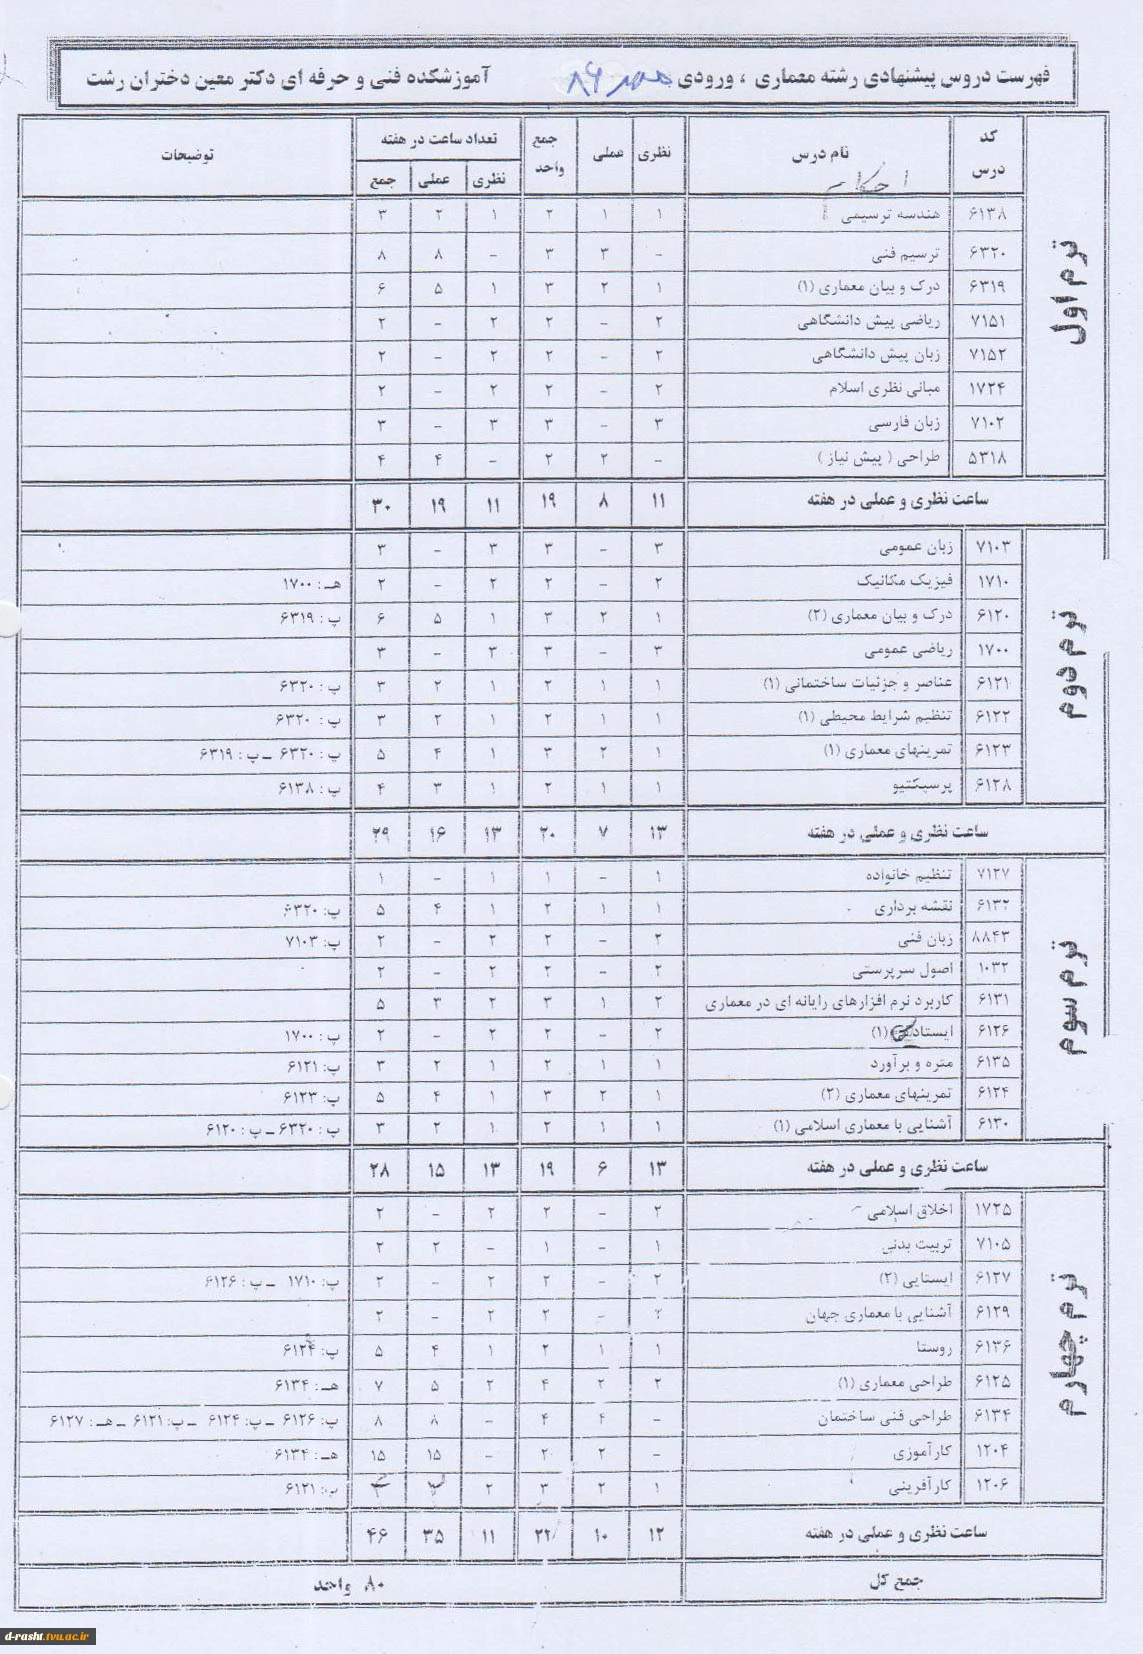 فهرست دروس پیشنهادی رشته معماری ، ورودی مهر ۸۶ آموزشکده فنی و حرفه ای دکتر معین دختران رشت
کد درس نام درس نظری عملی جمع واحد تعداد ساعت در هفته توضیحات
نظری عملی جمع
ترم اول
۶۱۳۸ هندسه ترسیمی ۱ ۱ ۲ ۱ ۲ ۳
۶۳۲۰ ترسیم فنی - ۳ ۳ - ۸ ۸
۶۳۱۹ درک و بیان معماری (۱) ۱ ۲ ۳ ۱ ۵ ۶
۷۱۵۱ ریاضی پیش دانشگاهی ۲ - ۲ ۲ - ۲
۷۱۵۲ زبان پیش دانشگاهی ۲ - ۲ ۲ - ۲
۱۷۲۴ مبانی نظری اسلام ۲ - ۲ ۲ - ۲
۷۱۰۲ زبان فارسی ۳ - ۳ ۳ - ۳
۵۳۱۸ طراحی ( پیش نیاز ) - ۲ ۲ - ۴ ۴
ساعت نظری و عملی در هفته ۱۱ ۸ ۱۹ ۱۱ ۱۹ ۳۰
ترم دوم
۷۱۰۳ زبان عمومی ۳ - ۳ ۳ - ۳
۱۷۱۰ فیزیک مکانیک ۲ - ۲ ۲ - ۲ هـ : ۱۷۰۰
۶۱۲۰ درک و بیان معماری (۲) ۱ ۲ ۳ ۱ ۵ ۶ پ : ۶۳۱۹
۱۷۰۰ ریاضی عمومی ۳ - ۳ ۳ - ۳
۶۱۲۱ عناصر و جزئیات ساختمانی (۱) ۱ ۱ ۲ ۱ ۲ ۳ پ : ۶۳۲۰
۶۱۲۲ تنظیم شرایط محیطی (۱) ۱ ۱ ۲ ۱ ۲ ۳ پ : ۶۳۲۰
۶۱۲۳ تمرینهای معماری (۱) ۱ ۲ ۳ ۱ ۴ ۵ پ : ۶۳۲۰ - پ : ۶۳۱۹
۶۱۲۸ پرسپکتیو ۱ ۱ ۲ ۱ ۳ ۴ پ : ۶۱۳۸
ساعت نظری و عملی در هفته ۱۳ ۷ ۲۰ ۱۳ ۱۶ ۲۹
ترم سوم
۷۱۲۷ تنظیم خانواده ۱ - ۱ ۱ - ۱
۶۱۳۲ نقشه برداری ۱ ۱ ۲ ۱ ۴ ۵ پ: ۶۳۲۰
۸۸۴۳ زبان فنی ۲ - ۲ ۲ - ۲ پ: ۷۱۰۳
۱۰۳۲ اصول سرپرستی ۲ - ۲ ۲ - ۲
۶۱۳۱ کاربرد نرم افزارهای رایانه ای در معماری ۲ ۱ ۳ ۲ ۳ ۵
۶۱۲۶ (۱) ۲ - ۲ ۲ - ۲ پ: ۱۷۰۰
۶۱۳۵ متره و برآورد ۱ ۱ ۲ ۱ ۲ ۳ پ: ۶۱۲۱
۶۱۲۴ تمرینهای معماری (۲) ۱ ۲ ۳ ۱ ۴ ۵ پ: ۶۱۲۳
۶۱۳۰ آشنایی با معماری اسلامی (۱) ۱ ۱ ۲ ۱ ۲ ۳ پ : ۶۳۲۰ - پ : ۶۱۲۰
ساعت نظری و عملی در هفته ۱۳ ۶ ۱۹ ۱۳ ۱۵ ۲۸
ترم چهارم
۱۷۲۵ اخلاق اسلامی ۲ - ۲ ۲ - ۲
۷۱۰۵ تربیت بدنی ۱ - ۱ - ۲ ۲
۶۱۲۷ ایستایی (۲) ۲ - ۲ ۲ - ۲ پ: ۱۷۱۰ - پ : ۶۱۲۶
۶۱۲۹ آشنایی با معماری جهان ۲ - ۲ ۲ - ۲
۶۱۳۶ روستا ۱ ۱ ۲ ۱ ۴ ۵ پ: ۶۱۲۴
۶۱۲۵ طراحی معماری (۱) ۲ ۲ ۴ ۲ ۵ ۷ هـ : ۶۱۳۴
۶۱۳۴ طراحی فنی ساختمان - ۴ ۴ - ۸ ۸ پ: ۶۱۲۶ - پ: ۶۱۲۴ - پ: ۶۱۲۱ - هـ : ۶۱۲۷
۱۲۰۴ کارآموزی - ۲ ۲ - ۱۵ ۱۵ هـ : ۶۱۳۴
۱۲۰۶ کارآفرینی ۱ ۲ ۳ ۲ پ: ۶۱۲۱
ساعت نظری و عملی در هفته ۱۲ ۱۰ ۲۲ ۱۱ ۳۵ ۴۶
جمع کل ۸۰ واحد
d-rasht.tvu.ac.ir